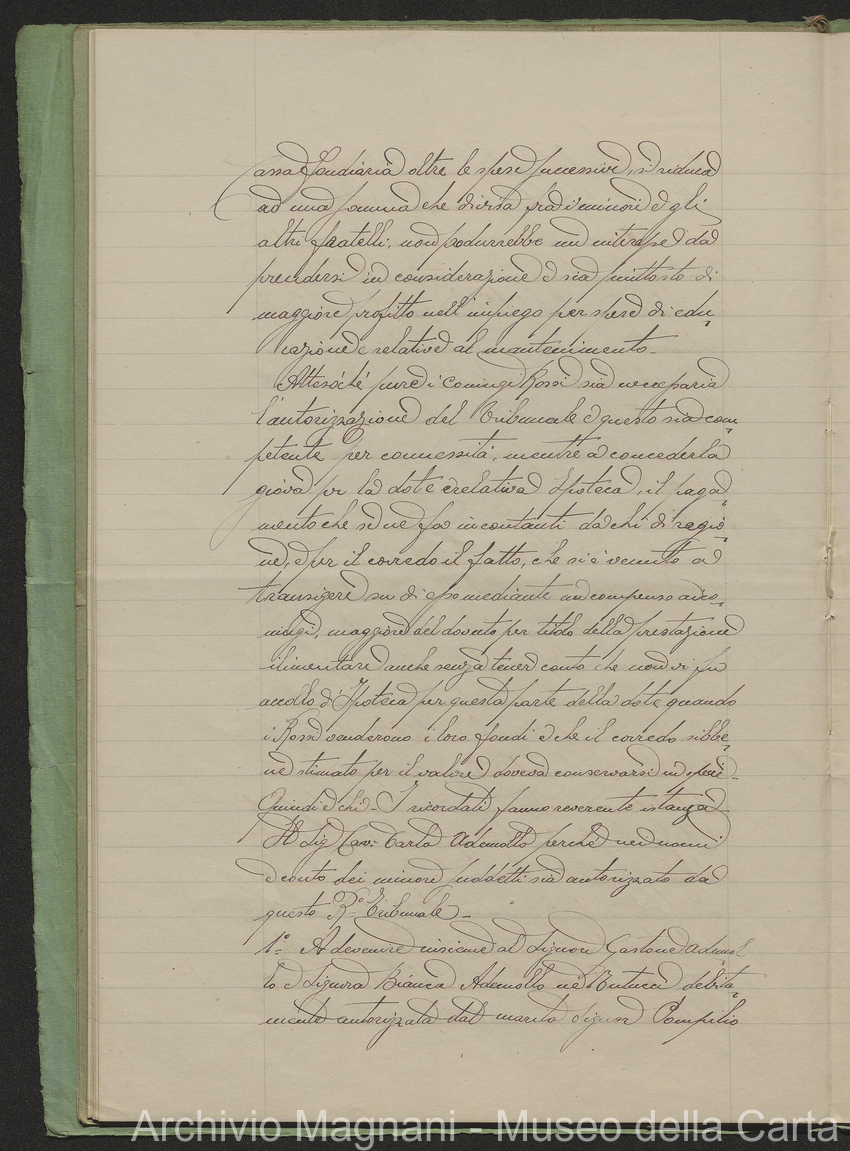 Cassa Fondiaria oltre le spese successive, si riduca
ad una somma che divisa fra i minori e gli
altri fratelli, non produrrebbe un interesse da
prendersi in considerazione e sia piuttosto di
maggiore profitto nell'impiego per spese di edu=
cazione e relative al mantenimento_
Attesoché pure i Coniugi Rossi sia necessaria
l'autorizzazione del Tribunale e questo sia com=
petente per connessità, mentre a concederla
giova per la dote e relativa Ipoteca, il paga=
mento che se ne fa in contanti da chi di ragio=
ne, e per il corredo il fatto, che si è venuto a
transigere su di esso mediante un compenso ai co=
niugi, maggiore del dovuto per titolo della prestazione
alimentare anche senza tener conto che non vi fu
accollo d'Ipoteca per questa parte della dote quando
i Rossi venderono i loro fondi e che il corredo sibbe=
ne stimato per il valore doveva conservarsi in specie_
Quindi è chi_ I ricordati fanno reverente istanza
Il Sig Cav: Carlo Ademollo perché nei nomi
e conto dei minori suddetti sia autorizzato da
questo R:o Tribunale_
1o= A devenire insieme al Signor Gastone Ademol=
lo e Signora Bianca Ademollo ne' Mutucci debita=
mente autorizzata dal marito Signor Pompilio
Archivio Magnani - Museo della Carta